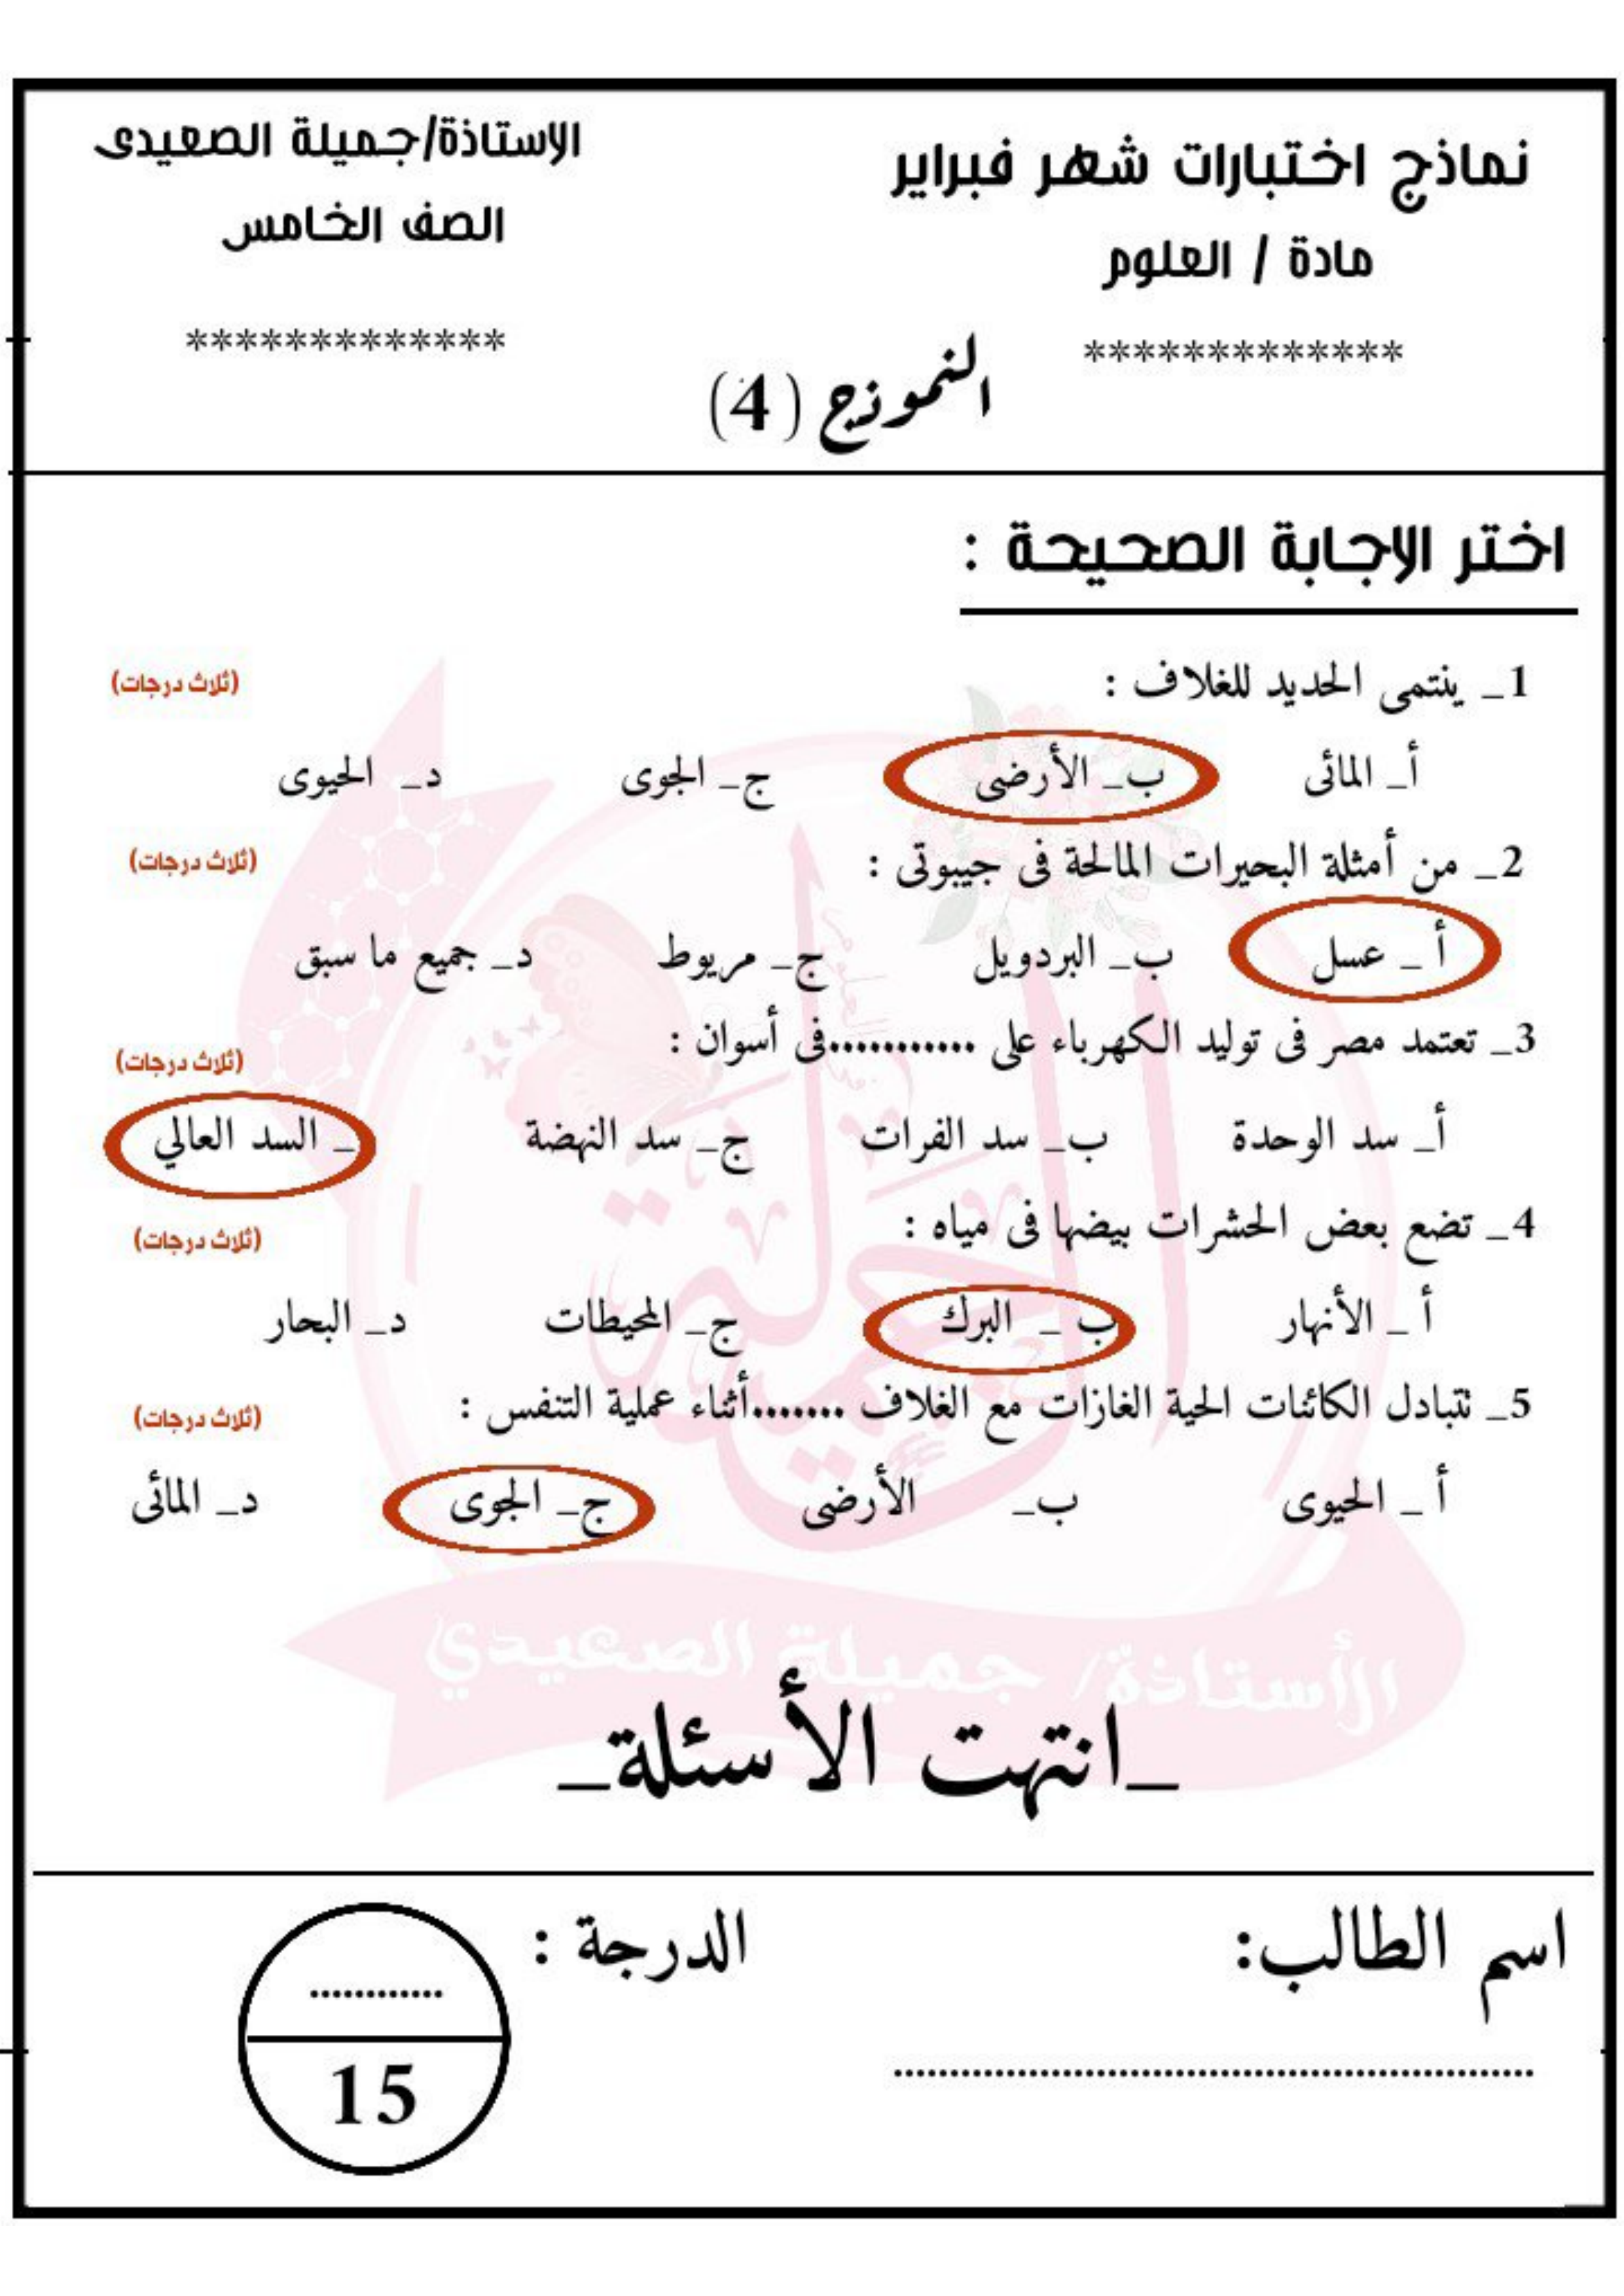 نماذج اختبارات شهر فبراير
الاستاذة/جميلة الصعيدى
مادة / العلوم
الصف الخامس
*************
*************
النموذج (4)
اختر الاجابة الصحيحة :
1_ ينتمى الحديد للغلاف :
(ثلاث درجات)
أ_ المائى ب_ الأرضى ج_ الجوى د_ الحيوى
2_ من أمثلة البحيرات المالحة فى جيبوتى :
(ثلاث درجات)
أ _ عسل ب_ البردويل ج_ مريوط د_ جميع ما سبق
3_ تعتمد مصر فى توليد الكهرباء على ...........فى أسوان :
(ثلاث درجات)
أ_ سد الوحدة ب_ سد الفرات ج_ سد النهضة _ السد العالي
4_ تضع بعض الحشرات بيضها فى مياه :
(ثلاث درجات)
أ _ الأنهار ب _ البرك ج_ المحيطات د_ البحار
5_ تتبادل الكائنات الحية الغازات مع الغلاف .......أثناء عملية التنفس :
(ثلاث درجات)
أ _ الحيوى ب_ الأرضى ج_ الجوى د_ المائى
الجميلة
فى العلوم
الأستاذة/ جميلة الصعيدي
_انتهت الأسئلة_
اسم الطالب:
الدرجة :
............
15
..........................................................